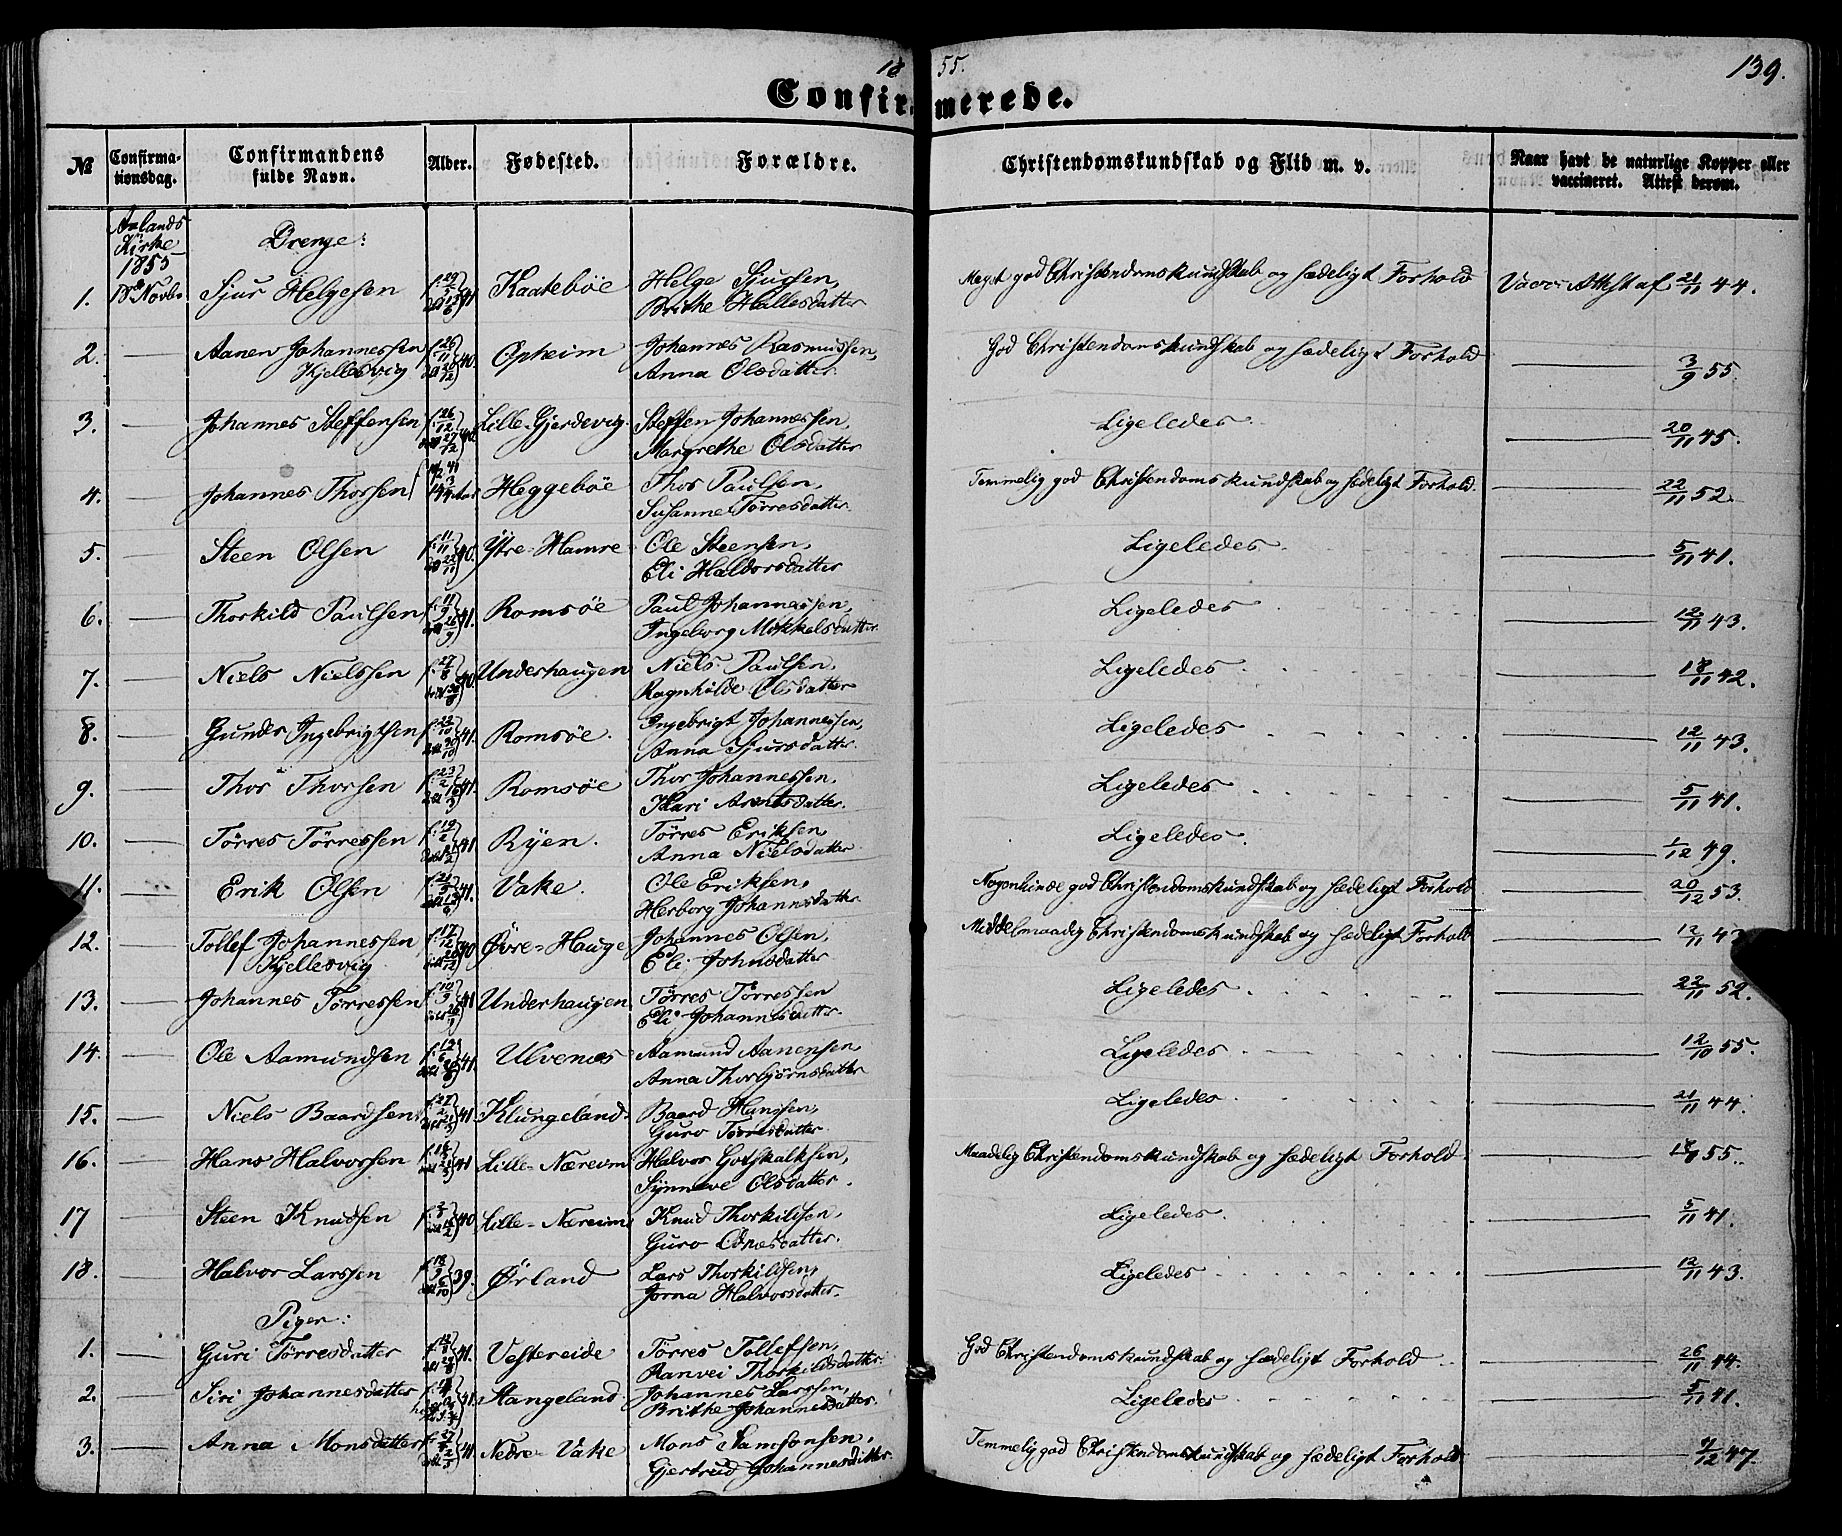 18 55.
139.
Confirmerede.
№
Confirma-
tionsdag.
Confirmandens
fulde Navn.
Alder.
Fødested.
Forældre.
Christendomskundskab og Flid m. v.
Naar havt de naturlige Kopper eller
vaccineret. Attest derom.
Kirke
1855
Drenge:
1. Sjur Helgesen 41 Kaatebøe Helge Sjursen, Meget god Christendomskundskab og sædeligt Forhold Attst af 21/11 44.
Brithe Hallesdatter
2. Aanen Johannessen 40. Opheim Johannes Rasmussen, God Christendomskundskab og sædeligt Forhold 3/9 55.
Kjellesvig Anna Olsdatter
3. Johannes Steffensen 26/12 27/12 40. Lille-Gjerdevig. Steffen Johannessen, Ligeledes 20/11 45.
Margrethe Olsdatter
4. Johannes Thorsen Heggebøe Thor Paulsen, Temmelig god Christendomskundskab og sædeligt Forhold. 22/11 52.
Susanne Tørresdatter
5. Steen Olsen 11/11 22/11 40. Ytre-Hamre Ole Steensen, Ligeledes 5/11 41.
Eli Haldorsdatter
6. Thorkild Paulsen 41. Romsøe Paul Johannessen, Ligeledes 12/11 43.
Ingeborg Mikkelsdatter
7. Niels Nielssen 40. Underhaugen Niels Paulsen, Ligeledes 18/11 42.
Ragnhilde Olsdatter
8. Gunder Ingebrigtsen 41. Romsøe. Ingebrigt Johannessen, Ligeledes 12/11 43.
Anna Sjursdatter
9. Thor Thorsen 23/2 41. Romsøe Thor Johannessen, Ligeledes 5/11 41.
Kari Arntsdatter
10. Tørres Tørressen 19/2 41 Ryen. Tørres Eriksen, Ligeledes 1/12 49.
Anna Nielsdatter
11. Erik Olsen 41. Vake. Ole Eriksen, Nogenlunde god Christendomskundskab og sædeligt Forhold 20/12 53.
Herborg Johannesdatter
12. Tollef Johannessen 17/12 40 Øvre-Hauge Johannes Olsen, Middelmaadig Christendomskundskab og sædeligt Forhold 12/11 43
Kjellesvig Eli Johnsdatter
13. Johannes Tørressen 41 Underhaugen Tørres Tørressen Ligeledes 22/11 52.
Eli Johannesdatter
14. Ole Aamundsen 41. Ulvenæs Aamund Aanensen, Ligeledes 12/10 55.
Anna Thorbjørnsdatter
15. Niels Baardsen 27/2 41 Klungeland Baard Hanssen, Ligeledes 21/11 44.
Guro Tørresdatter
16. Hans Halvorsen 41 Lille-Næreim Halvor Gotskalksen, Maadelig Christendomskundskab og sædeligt Forhold. 55.
Synneve Olsdatter.
17 Steen Knudsen 40 Lille-Næreim Knud Thorkildsen, Ligeledes. 5/11 41.
Guro datter.
18. Halvor Larssen 39. Ørland Lars Thorkildsen, Ligeledes 12/11 43.
Jorna Halvorsdatter
Piger:
1. Guri Tørresdatter 41. Vestereide Tørres Tollefsen, God Christendomskundskab og sædeligt Forhold 26/11 44.
Ranvei Thorkildsdatter
2. Siri Johannesdatter 41. Stangeland Johannes Larssen, Ligeledes 5/11 41.
Brithe Johannesdatter
3. Anna Monsdatter 41. Nedre-Vake Mons Samsonsen, Temmelig god Christendomskundskab og sædeligt Forhold 7/12 47.
Gjertrud Johannesdatter